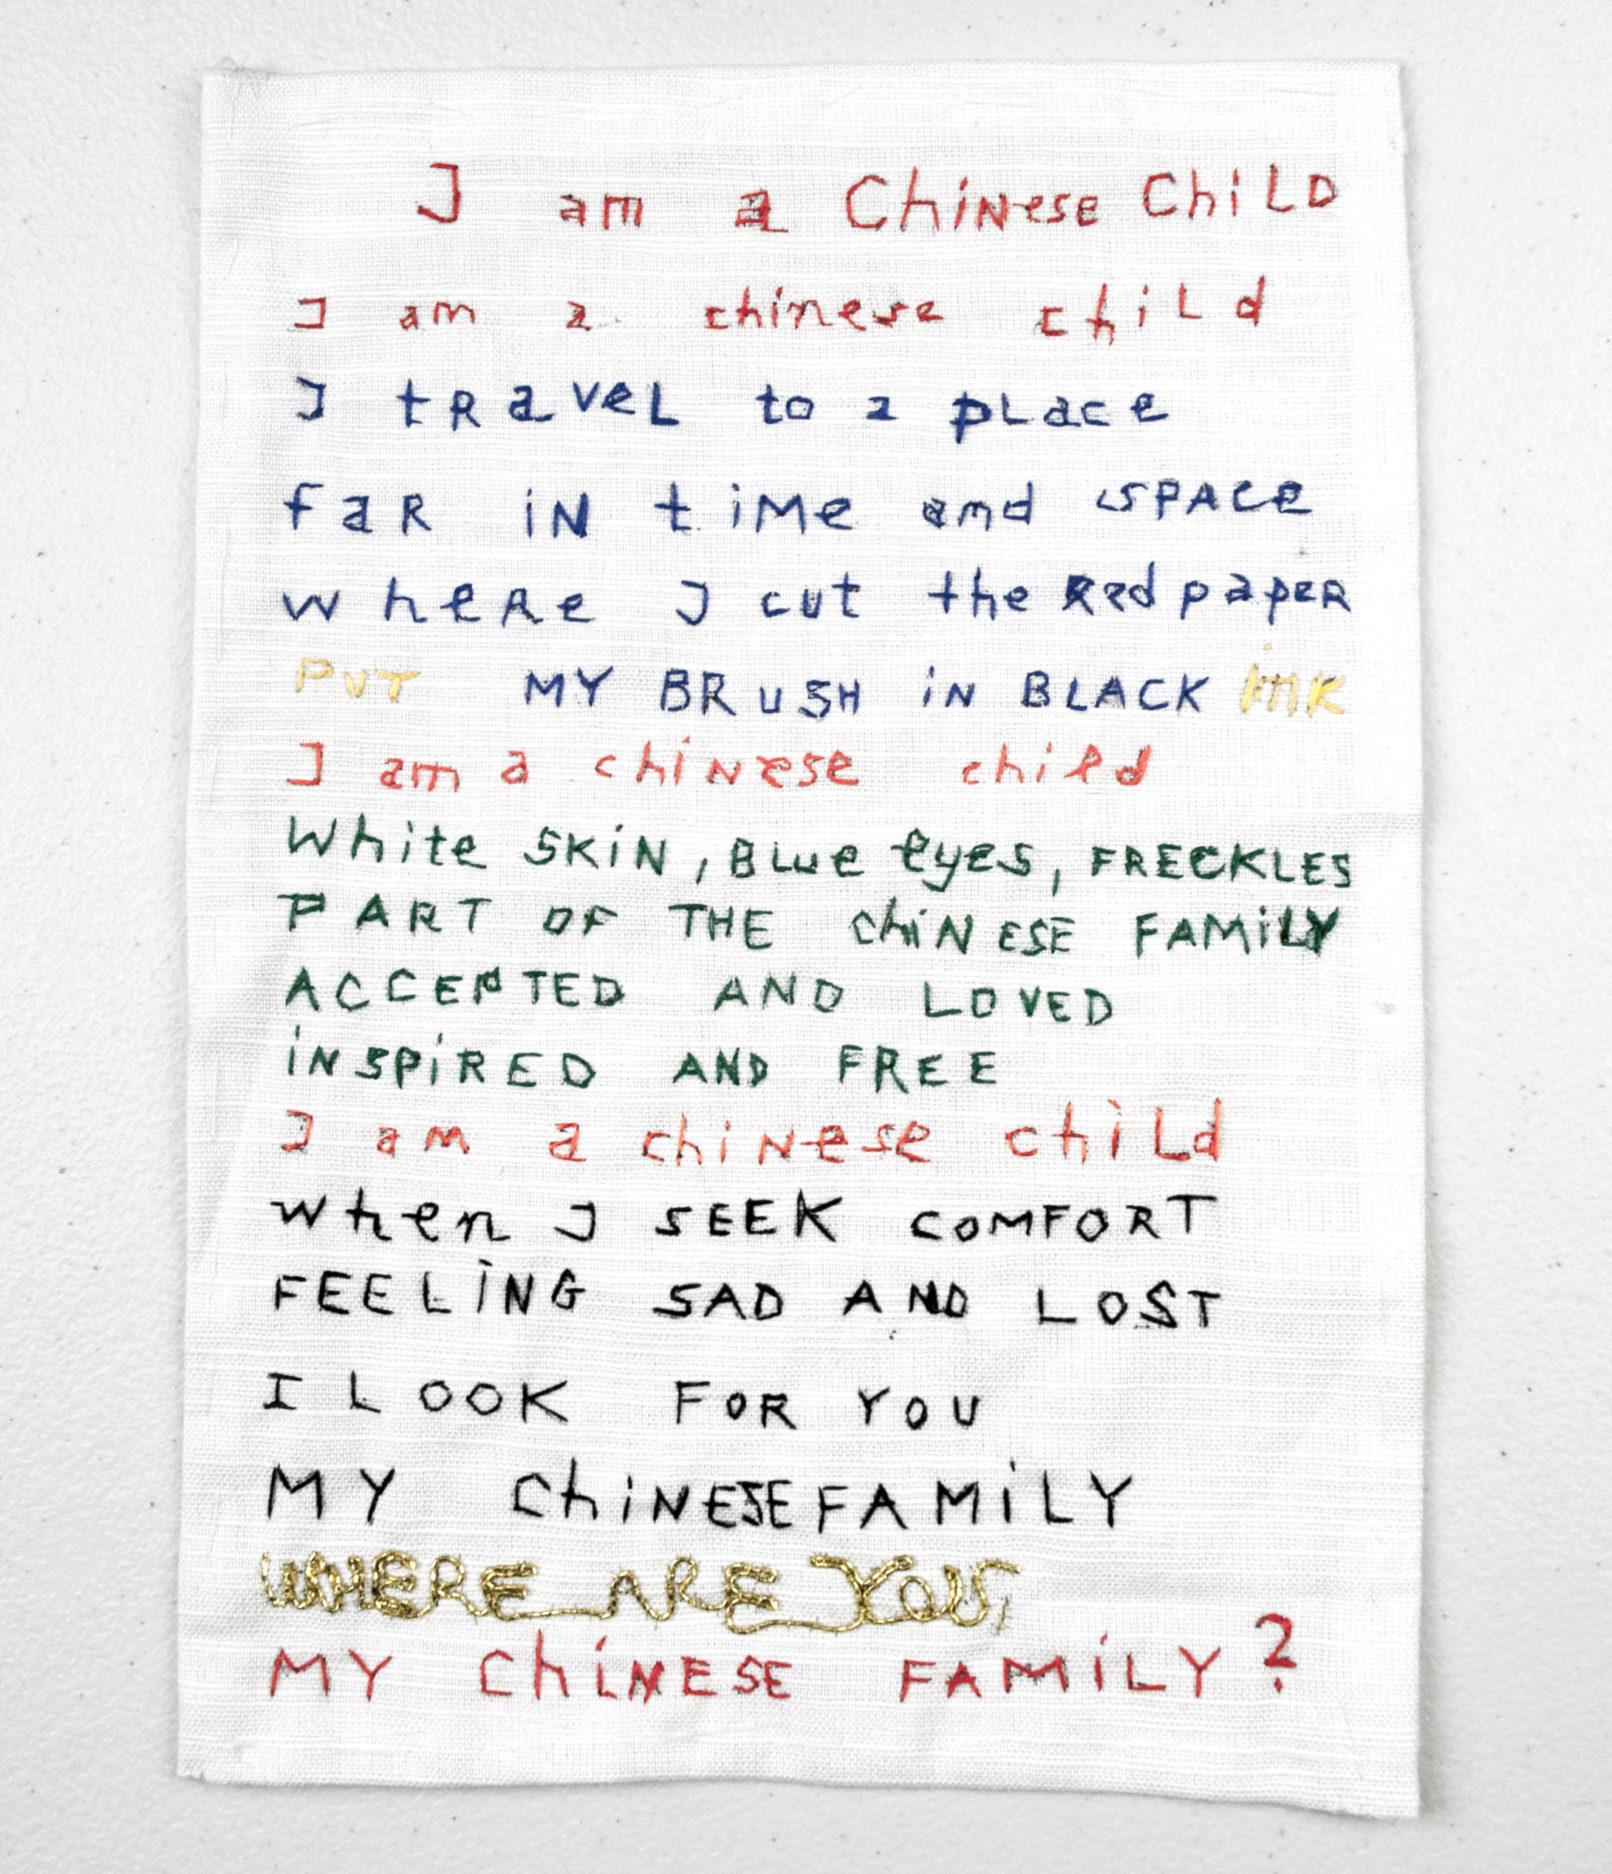 I am a ChiNese ChiLD
I am a chinese chiLd
I tRaveL to a pLace
faR iN tiMe and SPACe
wheRe I cut the Red papeR
PUT MY BRuSH iN BLACK iNK
I am a chiNese child
White SKiN, BLue eyes, FRECKLES
PART OF THE ChiNESE FAMiLY
ACCEPTED AND LOVED
iNSPiRED AND FREE
I am a chiNese chiLd
when I SEEK COMFORT
FEELiNG SAD AND LOST
I LOOK FOR YOU
MY ChiNESE FAMiLY
WHERE ARE YOU,
MY ChiNESE FAMiLY?